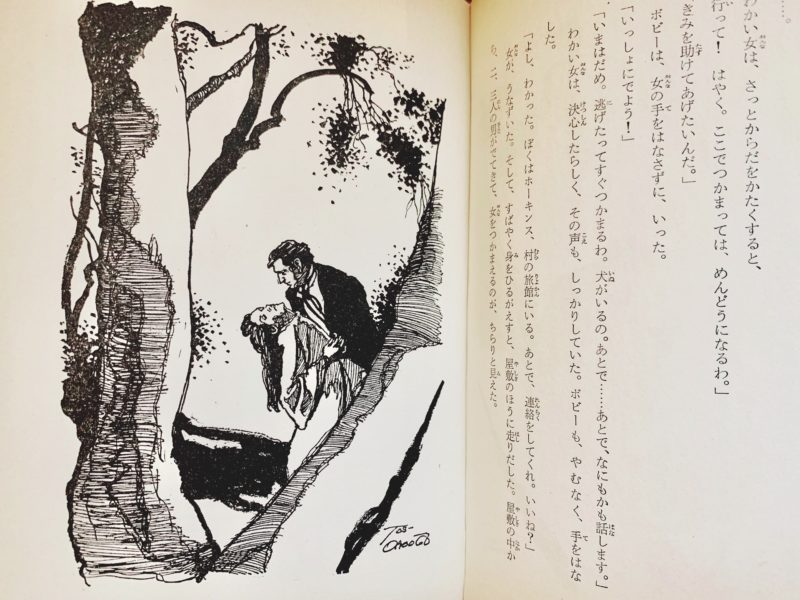 ……。
わかい女は、さっとからだをかたくすると、
行って！　はやく。ここでつかまっては、めんどうになるわ。」
きみを助けてあげたいんだ。」
ボビーは、女の手をはなさずに、いった。
「いっしょにでよう！」
「いまはだめ。逃げたってすぐつかまるわ。犬がいるの。あとで……あとで、なにもかも話します。」
わかい女は、決心したらしく、その声も、しっかりしていた。ボビーも、やむなく、手をはな
した。
「よし、わかった。ぼくはホーキンス、村の旅館にいる。あとで、連絡をしてくれ。いいね？」
女が、うなずいた。そして、すばやく身をひるがえすと、屋敷のほうに走りだした。屋敷の中か
ら、二、三人の男がでてきて、女をつかまえるのが、ちらりと見えた。